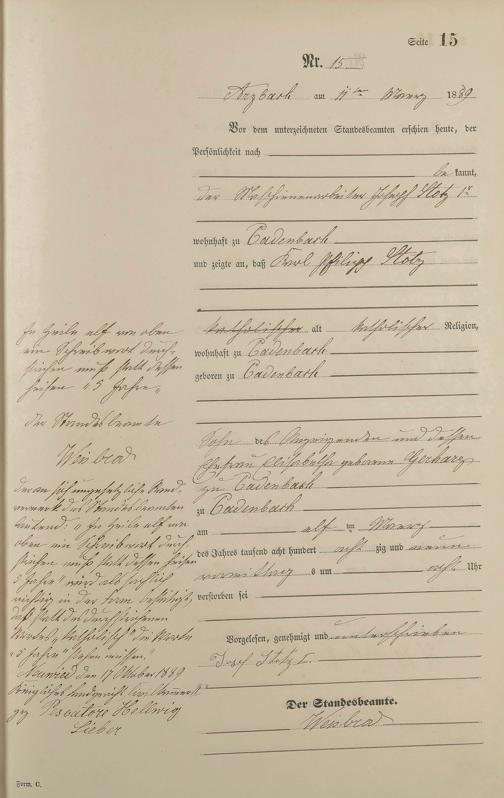 Seite 15
Nr. 15
Arzbach am 11ten Maerz 1889
Vor dem unterzeichneten Standesbeamten erschien heute, der
Persönlichkeit nach
be kannt,
der Maschienenarbeiter Joseph Stotz 1r
wohnhaft zu Cadenbach
und zeigte an, daß Karl Philipp Stotz
katholischer alt katholischer Religion,
wohnhaft zu Cadenbach
geboren zu Cadenbach
Sohn des Anzeigenden und dessen
Ehefrau Elisabetha geborene Gerharz
zu Cadenbach
zu Cadenbach
am elf ten Maerz
des Jahres tausend acht hundert acht zig und neun
vormittag s um acht Uhr
verstorben sei
Vorgelesen, genehmigt und unterschrieben
Josef Stotz I.
Der Standesbeamte.
Weisbrod
In Zeile elf von oben
ein Schreibwort durch-
strichen muß statt dessen
heißen "5 Jahre"
der Standesbeamte
Weisbrod
Der an sich ungesetzliche Rand-
vermerk des Standesbeamten
lautend: "In Zeile elf von
oben ein Schreibwort durch-
strichen muß statt dessen heißen
5 Jahre" wird als sachlich
richtig in der Form bestätigt,
daß statt des durchstrichenen
Wortes "katholisch" die Worte
"5 Jahre" stehen müssen.
Neuwied den 17 Oktober 1889
Königliches Landgericht Civilkammer
gez Pescatore Hellwig
Lieber
Form. C.